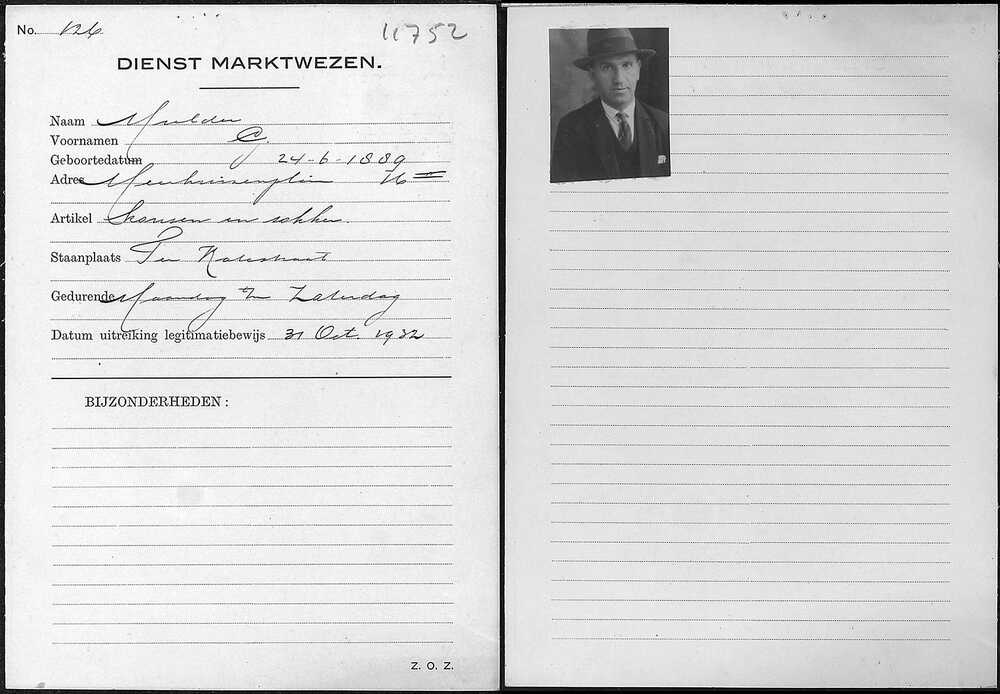 No. 126
11752
DIENST MARKTWEZEN.
Naam Mulder
Voornamen
Geboortedatum 24-6-1889
Adres 16 II
Artikel kousen en sokken.
Staanplaats Ten Katestraat
Gedurende Maandag t/m Zaterdag
Datum uitreiking legitimatiebewijs 31 Oct. 1932
BIJZONDERHEDEN :
Z. O. Z.